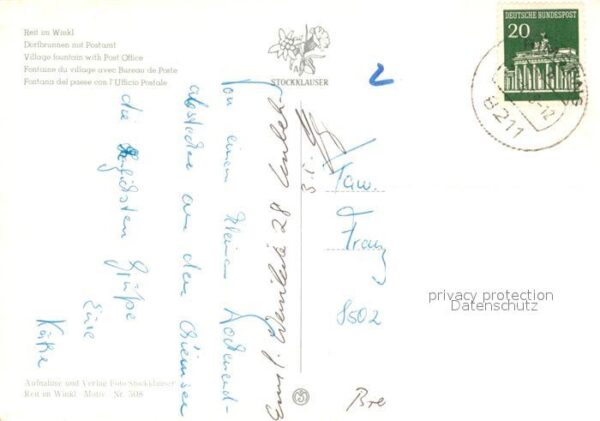 Reit im Winkl
Dorfbrunnen mit Postamt
Village fountain with Post Office
Fontaine du village avec Bureau de Poste
Fontana del paese con l'Ufficio Postale
STOCKKLAUSER
2
DEUTSCHE BUNDESPOST
20
8211
Von einem kleinen Wochenend-
abstecher an den Chiemsee
die herzlichsten Grüße
Eure
Käthe
28
Fam.
Franz
8502
privacy protection
Datenschutz
Bre
Aufnahme und Verlag Foto Stockklauser
Reit im Winkl - Motiv. Nr. 508